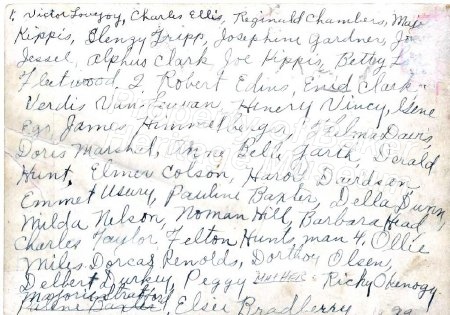 1. Victor Lovejoy, Charles Ellis, Reginald Chambers,
Kippis, Glenzy Tripp, Josephine Gardner,
Jessel, Alphus Clark Joe Kippis, Betty
Fleetwood. 2 Robert Edins, Enid Clark -
Verdis Van Henery Vincy, Gene
James Thelma Daers,
Doris Marshel, Anne Belle Garth, Derald
Hunt, Elmer Colson, Harold Davidson,
Emmet Usury, Pauline Baxter, Della Dunn,
Milda Nelson, Noman Hill, Barbara Head
Charles Taylor Felton Hunts, man 4, Ollie
Miles Dorcas Renolds, Dorthoy Olsen,
Delbert Durkey, Peggy Ricky
Marjorie
Baxter, Elsie Bradberry